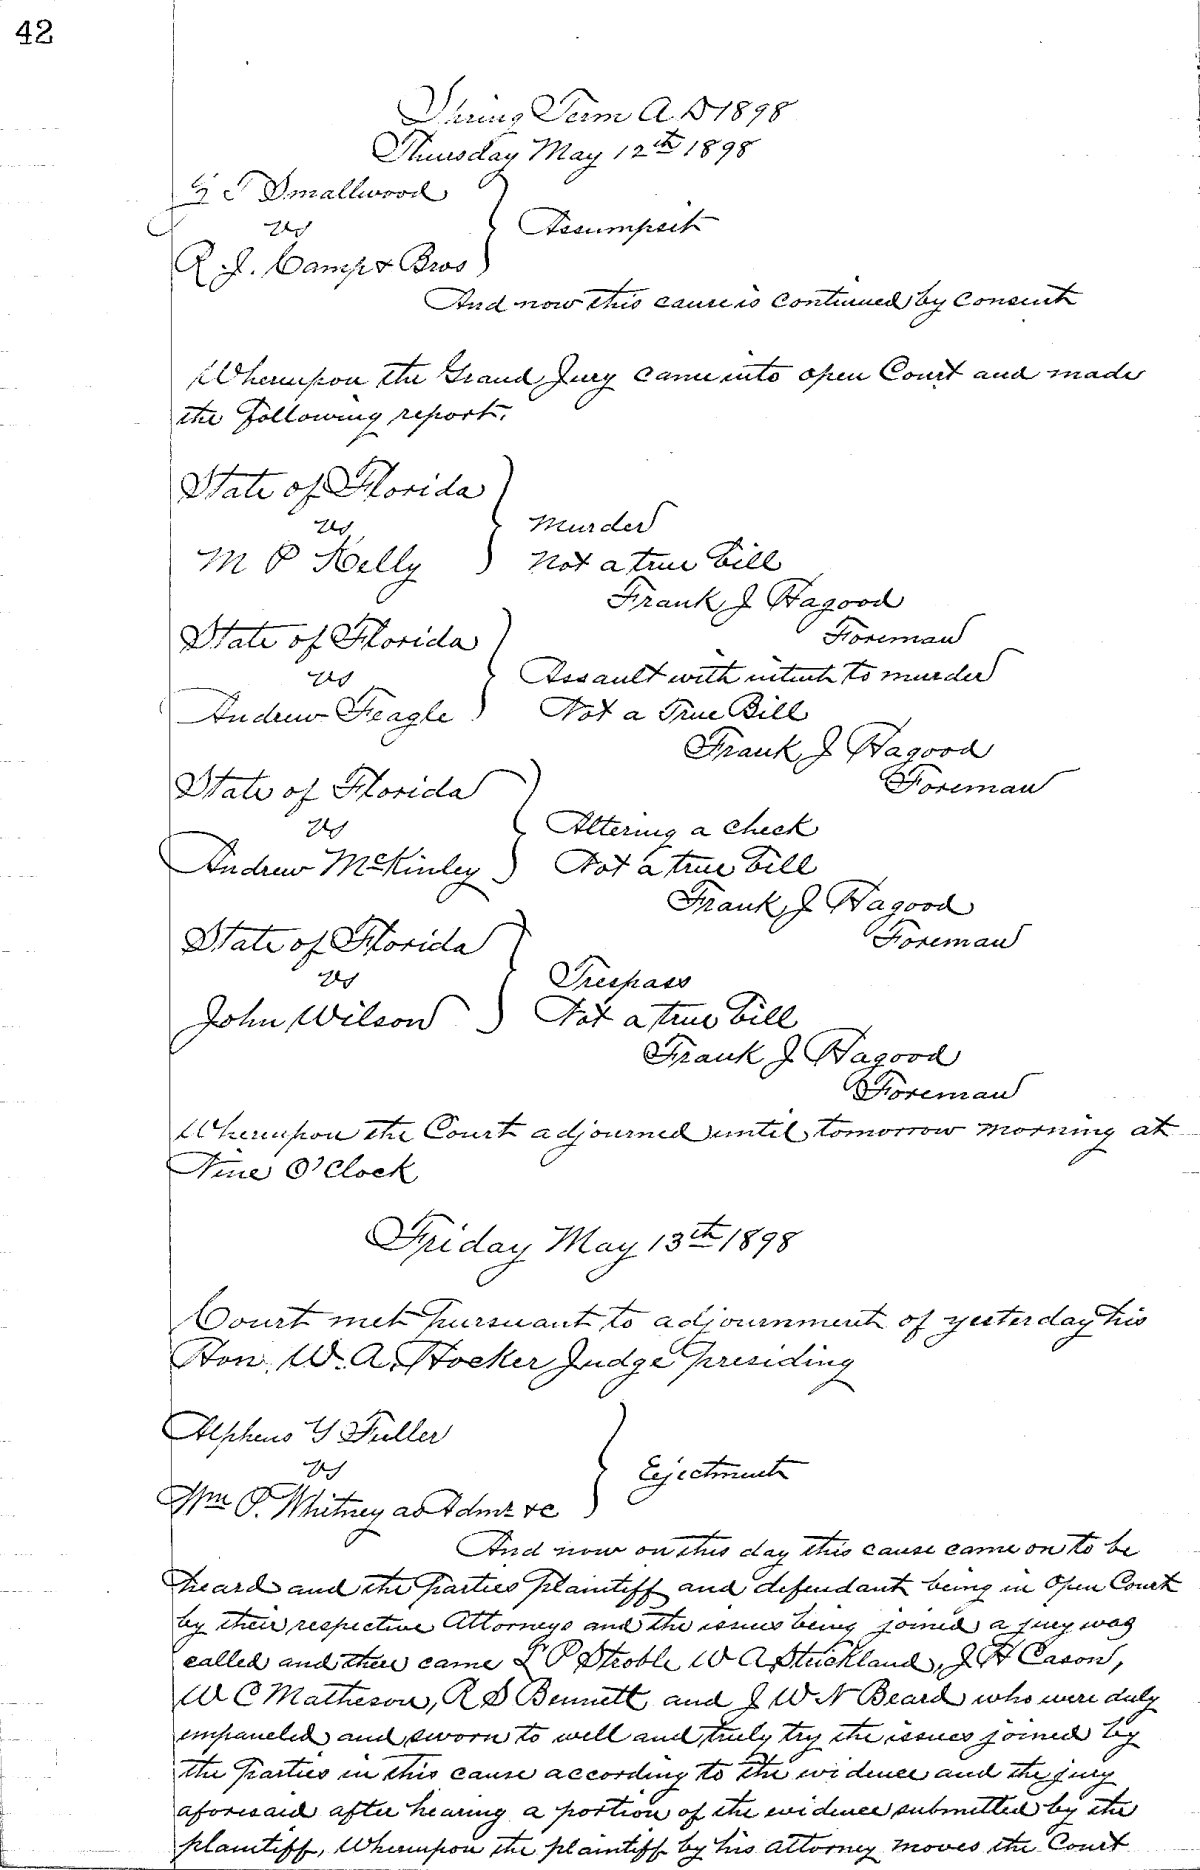 42
Spring Term A.D 1898
Thursday May 12th 1898
G T Smallwood
vs
Assumpsit
R. J. Camp & Bros
And now this cause is continued by consent
Whereupon the Grand Jury came into open Court and made
the following report.
State of Florida
vs
Murder
M P Kelly
Not a true bill
Frank J Hagood
Foreman
State of Florida
vs
Assault with intent to murder
Andrew Feagle
Not a True Bill
Frank J Hagood
Foreman
State of Florida
vs
Altering a check
Andrew McKinley
Not a true bill
Frank J Hagood
Foreman
State of Florida
vs
Trespass
John Wilson
Not a true bill
Frank J Hagood
Foreman
Whereupon the Court adjourned until tomorrow morning at
Nine O'Clock
Friday May 13th 1898
Court met pursuant to adjournment of yesterday his
Hon. W. A. Hocker Judge presiding
Alpheus Y Fuller
vs
Ejectment
Wm P. Whitney as Admr &c
And now on this day this cause came on to be
heard and the parties plaintiff and defendant being in Open Court
by their respective Attorneys and the issues being joined a jury was
called and then came L P Stroble W A Strickland, J H Cason,
W C Matheson, R S Bennett and J W N Beard who were duly
empaneled and sworn to well and truly try the issues joined by
the parties in this cause according to the evidence and the jury
aforesaid after hearing a portion of the evidence submitted by the
plaintiff, Whereupon the plaintiff by his attorney moves the Court